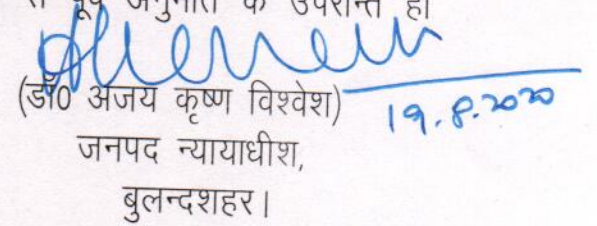 पूर्व अनुमति के उपरान्त ही
(डॉ0 अजय कृष्ण विश्वेश)
19.8.2020
जनपद न्यायाधीश,
बुलन्दशहर।